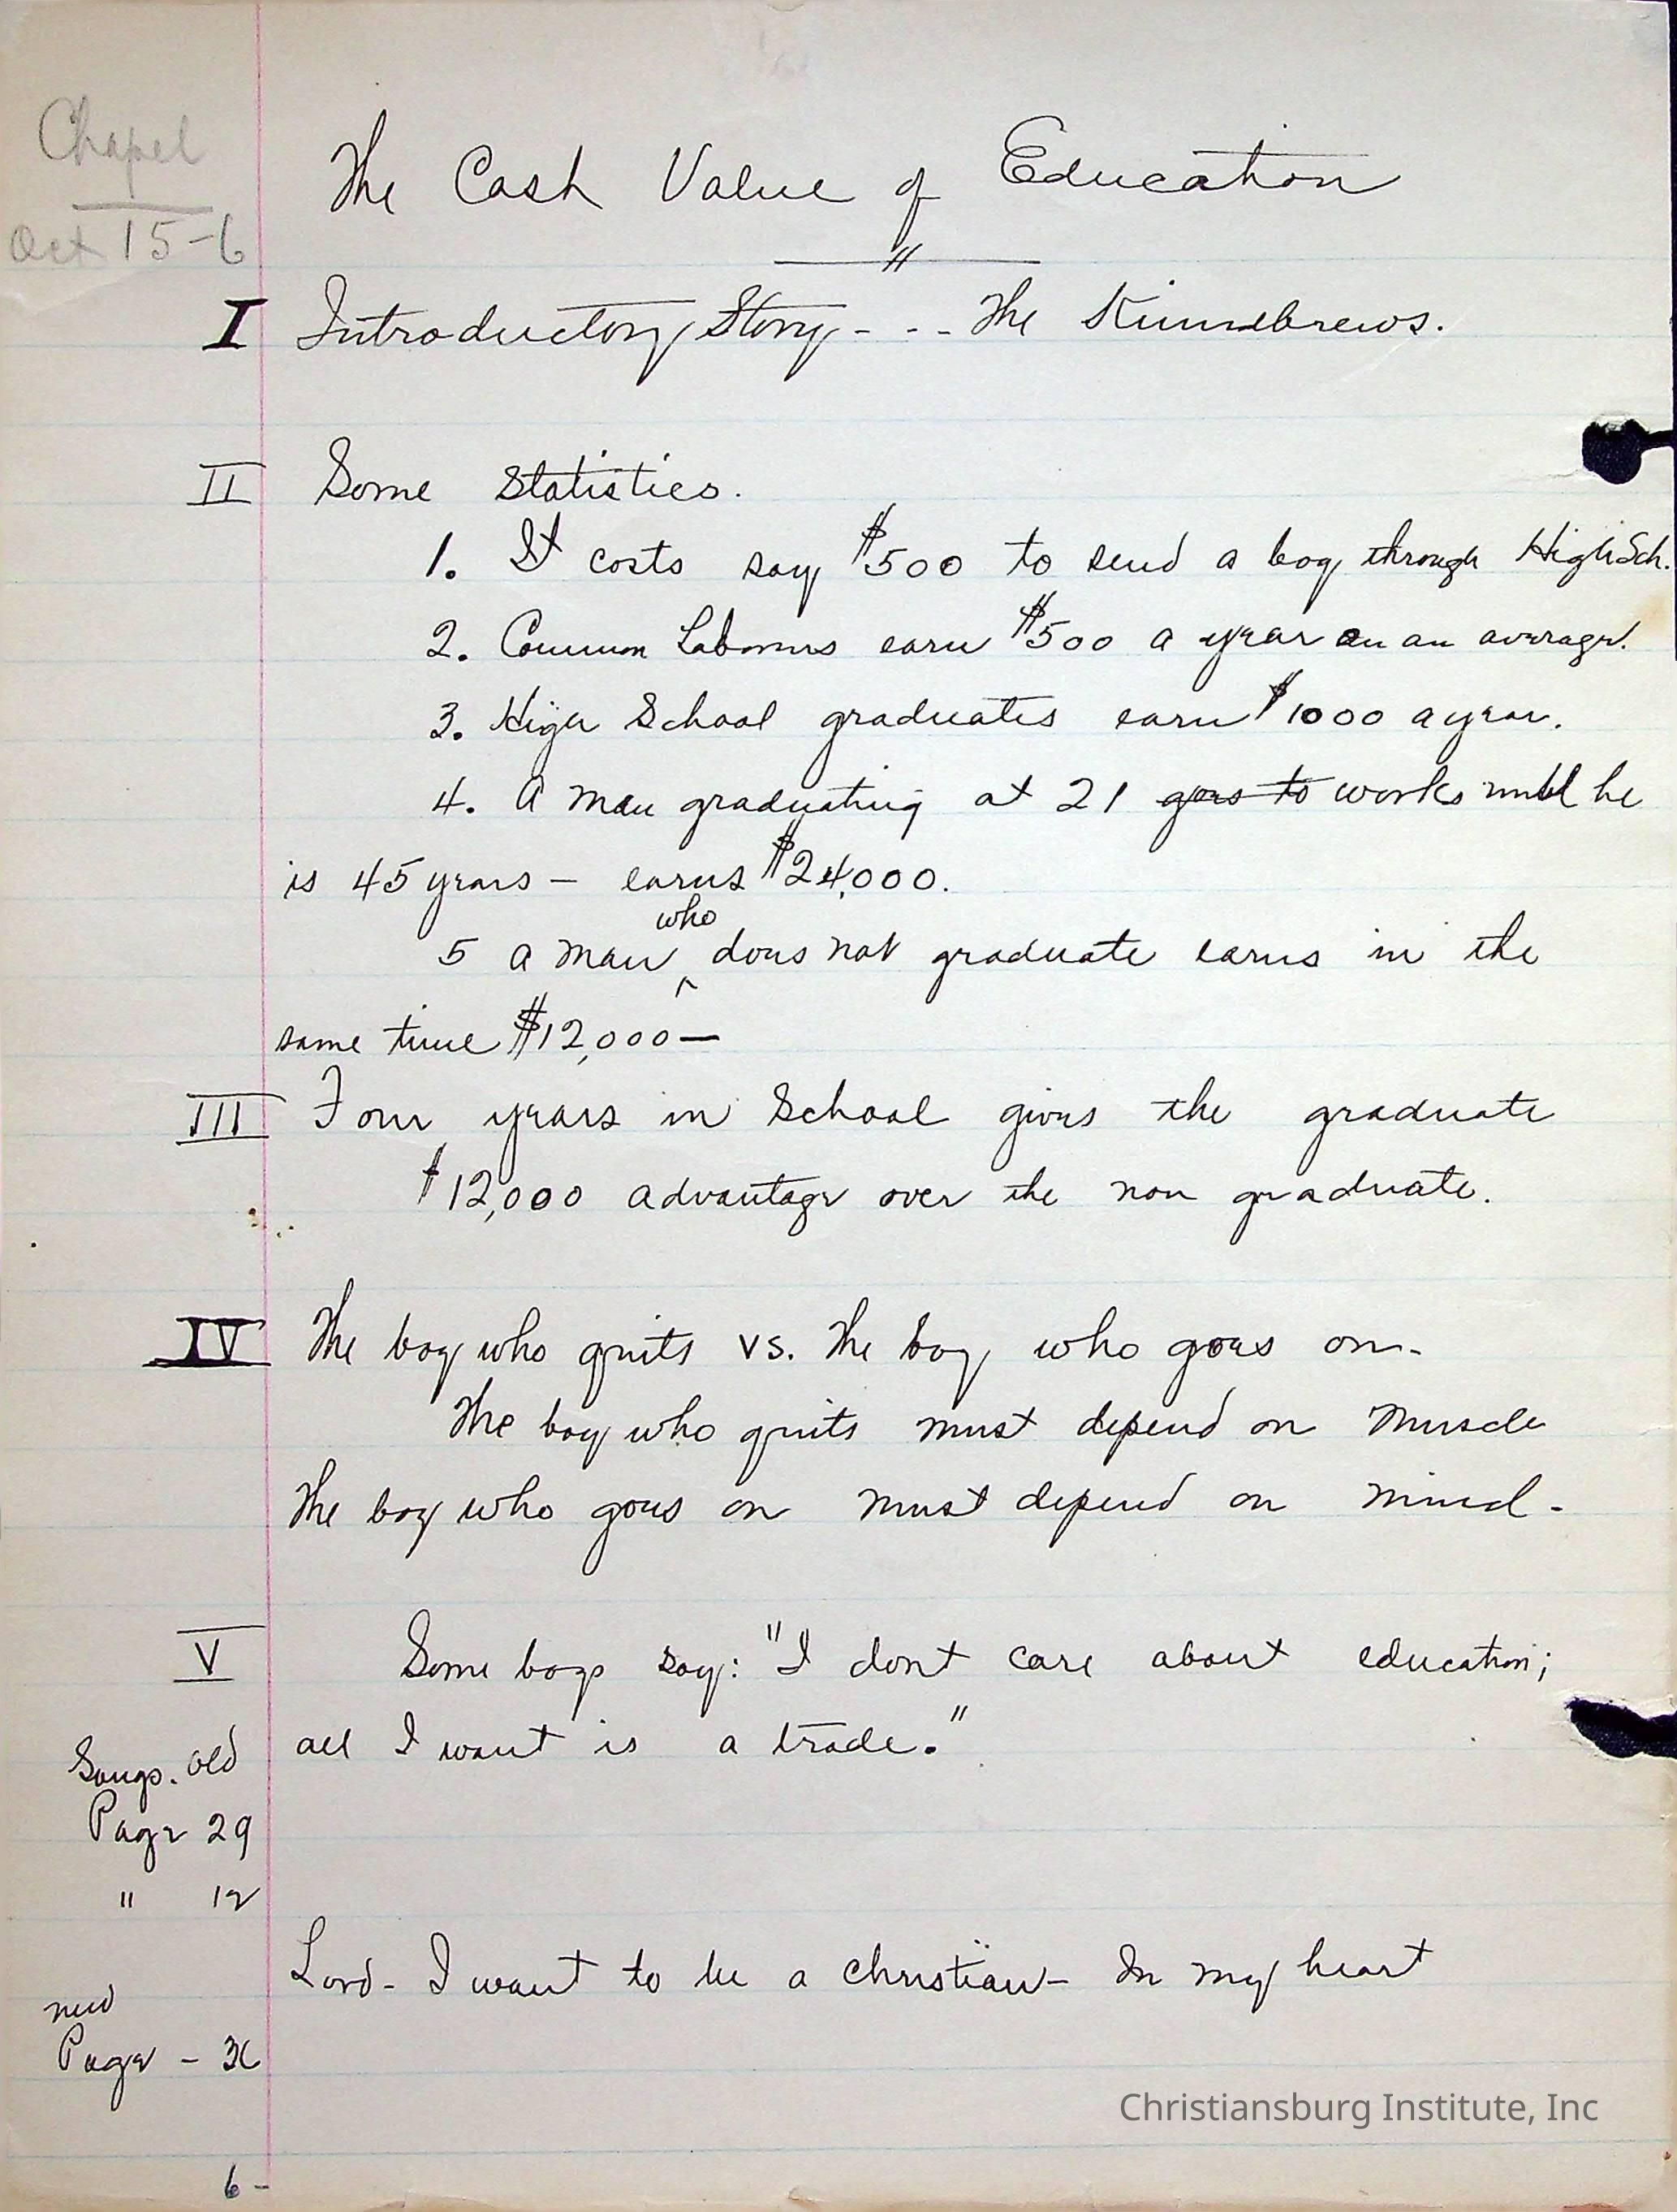 Chapel
Oct 15-6
The Cash Value of Education
"
I Introductory Story - - - The Kinnebrews.
II Some Statistics.
1. It costs say $500 to send a boy through High Sch.
2. Common Laborers earn $500 a year on an average.
3. High School graduates earn $1000 a year.
4. A man graduating at 21 goes to works until he
is 45 years — earns $24,000.
who
5 A man ^ does not graduate earns in the
same time $12,000—
III Four years in School gives the graduate
$12,000 advantage over the non graduate.
IV The boy who quits vs. The boy who goes on.
The boy who quits must depend on Muscle
The boy who goes on must depend on mind-
V Some boys say: "I dont care about education;
all I want is a trade."
Songs. Old
Page 29
" 12
Lord- I want to be a christian- In my heart
new
Page -
6 -
Christiansburg Institute, Inc